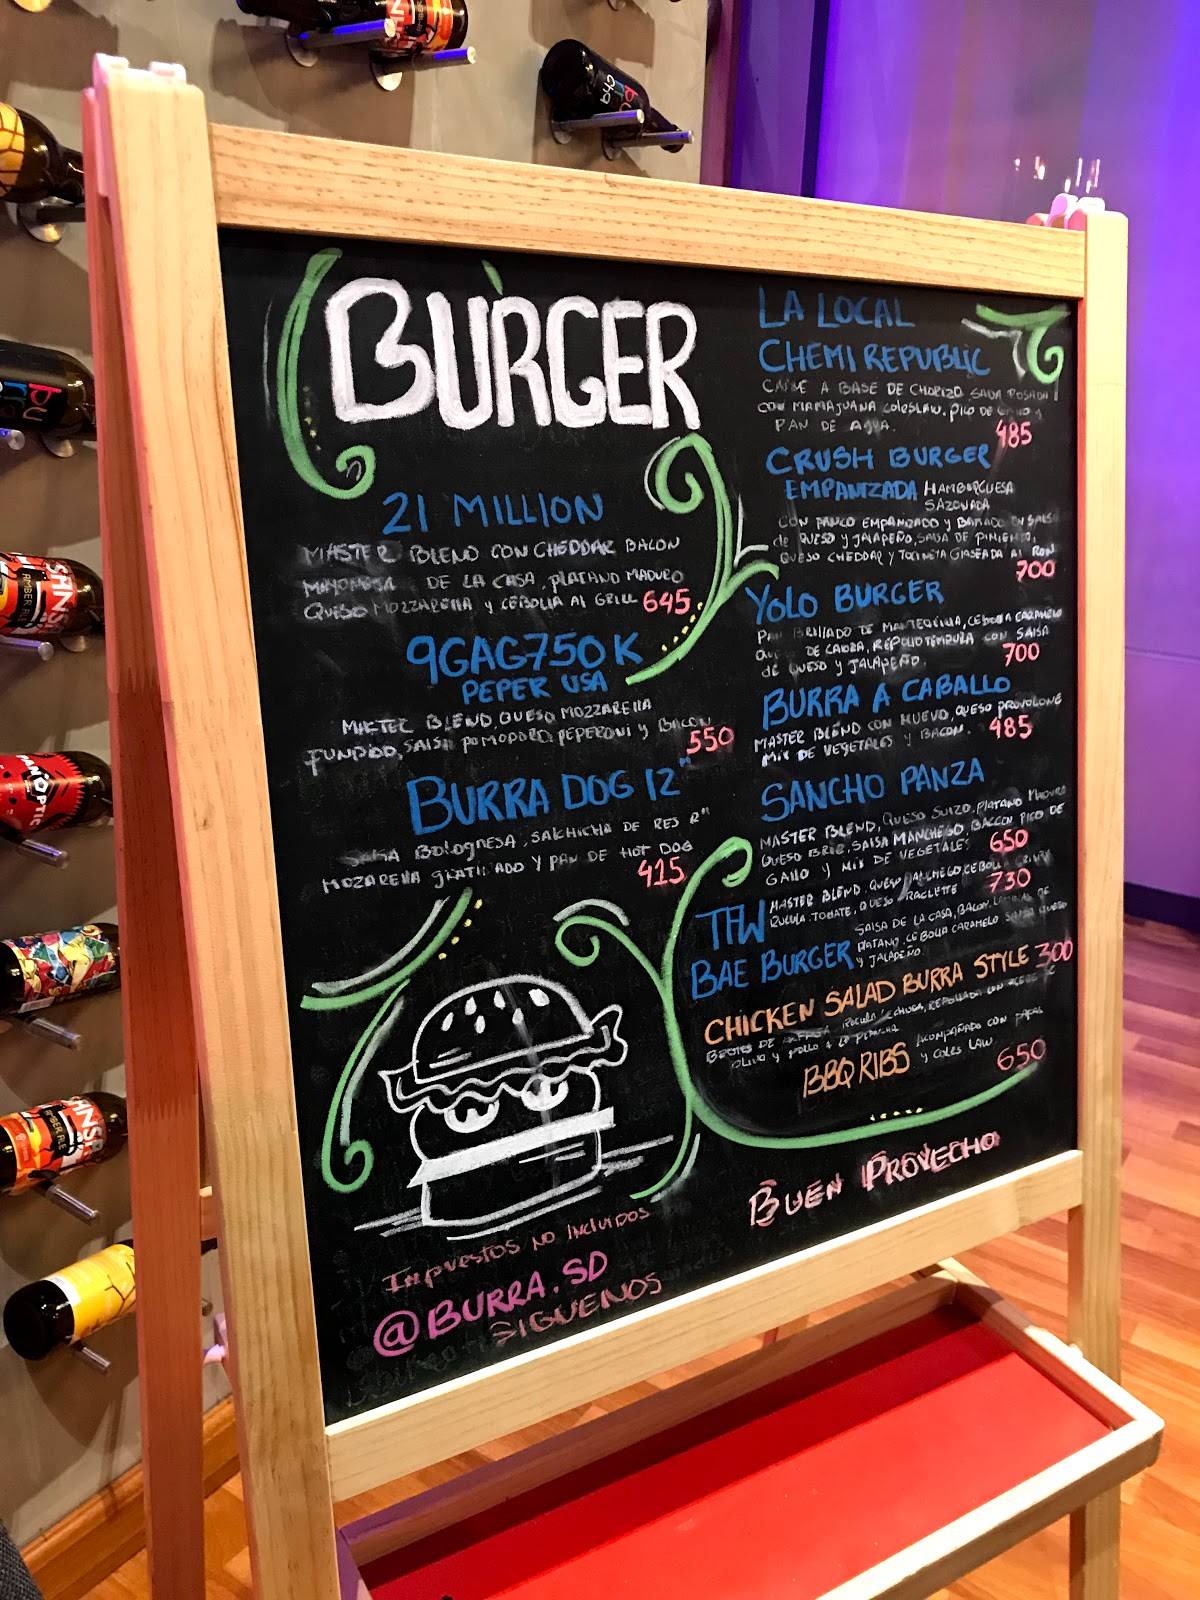 BURGER
21 MILLION
MASTER BLEND CON CHEDDAR BACON
MAYONESA DE LA CASA, PLATANO MADURO
QUESO MOZZARELLA Y CEBOLLA AL GRILL 645
9GAG750K
PEPER USA
MASTER BLEND, QUESO MOZZARELLA
FUNDIDO, SALSA POMODORO, PEPERONI Y BACON
550
BURRA DOG 12"
SALSA BOLOGNESA, SALCHICHA DE RES
MOZARELLA GRATINADO Y PAN DE HOT DOG
415
IMPUESTOS NO INCLUIDOS
@BURRA.SD
SIGUENOS
LA LOCAL
CHEMI REPUBLIC
CARNE A BASE DE CHORIZO, SALSA ROSADA
CON MAMAJUANA, COLESLAW, PICO DE GALLO Y
PAN DE AGUA.
485
CRUSH BURGER
EMPANIZADA HAMBURGUESA
SAZONADA
CON PANCO EMPANIZADO Y BAÑADO EN SALSA
de QUESO Y JALAPEÑO, SALSA DE PIMIENTO,
QUESO CHEDDAR Y TOCINETA GLASEADA AL RON
700
YOLO BURGER
PAN BRILLADO DE MANTEQUILLA, CEBOLLA CARAMELO
QUESO DE CABRA, REPOLLO TEMPURA CON SALSA
de QUESO Y JALAPEÑO.
700
BURRA A CABALLO
MASTER BLEND CON HUEVO, QUESO PROVOLONE
MIX DE VEGETALES Y BACON. 485
SANCHO PANZA
MASTER BLEND, QUESO SUIZO, PLATANO MADURO
QUESO BRIE, SALSA MANCHEGO, BACCON PICO DE
GALLO Y MIX DE VEGETALES 650
TFW MASTER BLEND, QUESO MANCHEGO, CEBOLLA
RUCULA, TOMATE, QUESO RAGLETTE 730
BAE BURGER SALSA DE LA CASA, BACON,
PLATANO, CEBOLLA CARAMELO SALSA QUESO
Y JALAPEÑO.
CHICKEN SALAD BURRA STYLE 300
BROTES DE ALFALFA RUCULA LECHUGA, REPOLLADA CON ACEITE DE
OLIVO Y POLLO A LA PLANCHA
BBQ RIBS ACOMPAÑADO CON PAPAS
Y COLES LAW.
650
BUEN PROVECHO